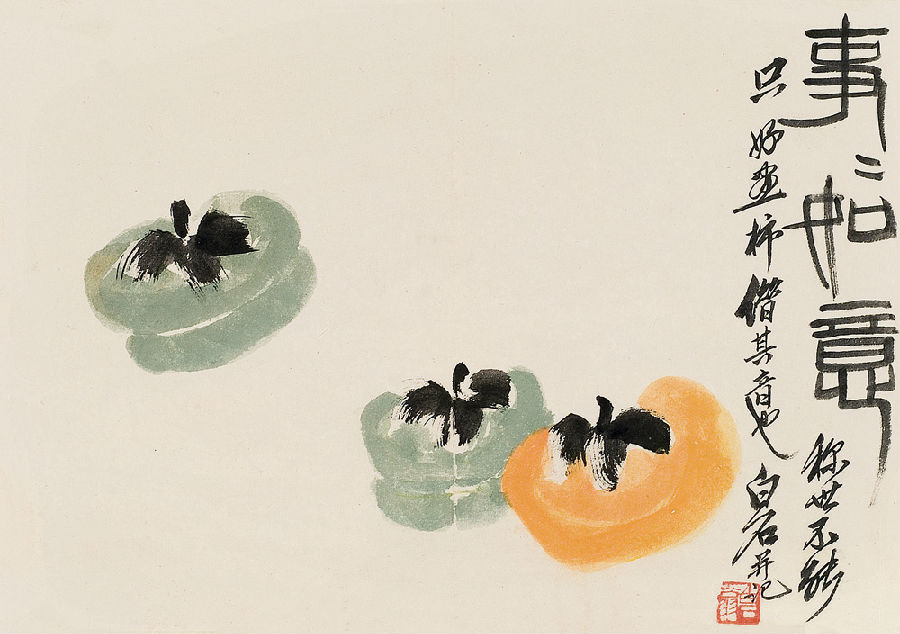 事〻如意
称世不能
只好畫柿借其音也
白石并记